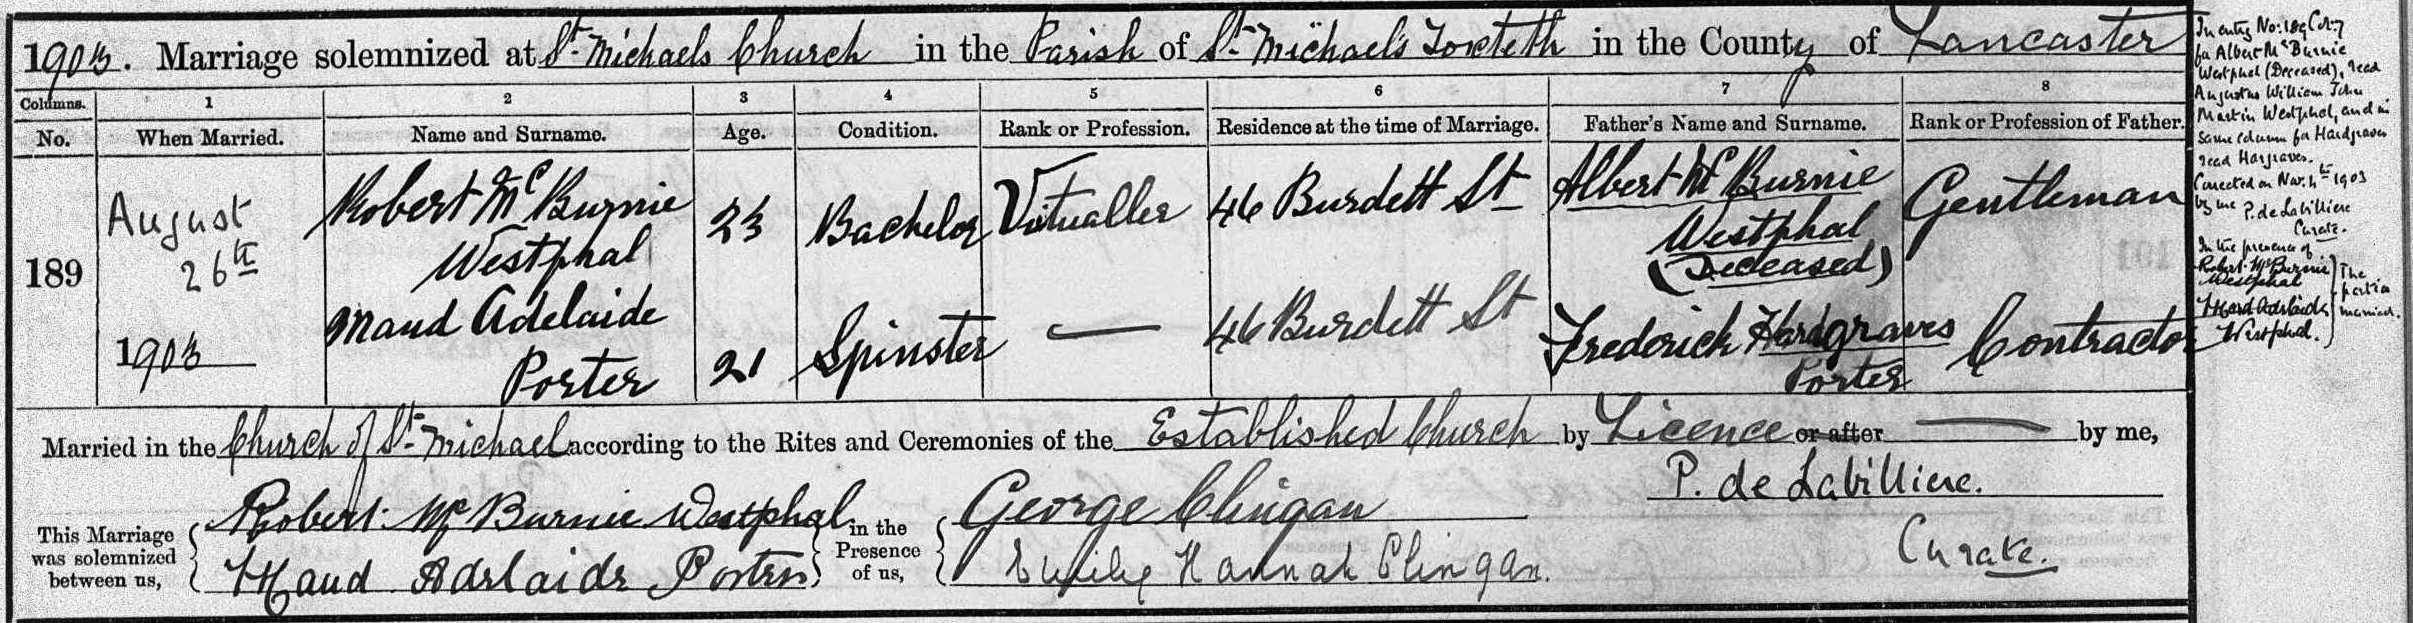 1903. Marriage solemnized at St. Michaels Church in the Parish of St. Michael's Toxteth in the County of Lancaster
Columns. 1 2 3 4 5 6 7 8
No. When Married. Name and Surname. Age. Condition. Rank or Profession. Residence at the time of Marriage. Father's Name and Surname. Rank or Profession of Father.
189 August 26th 1903
Robert McBurnie
Westphal
23 Bachelor Victualler 46 Burdett St
Albert McBurnie
Westphal
(Deceased)
Gentleman
Maud Adelaide
Porter
21 Spinster — 46 Burdett St
Frederick Hardgraves
Porter
Contractor
Married in the Church of St. Michael according to the Rites and Ceremonies of the Established Church by Licence or after — by me,
P. de Labilliere.
Curate.
This Marriage
was solemnized
between us,
Robert McBurnie Westphal
Maud Adelaide Porter
in the
Presence
of us,
George Clingan
Emily Hannah Clingan.
In entry No: 189 Col: 7
for Albert McBurnie
Westphal (Deceased), read
Augustus William John
Martin Westphal, and in
same column for Hardgraves
read Hargraves.
Corrected on Nov: 4th 1903
by me P. de Labilliere
Curate.
In the presence of
Robert McBurnie
Westphal
Maud Adelaide
Westphal.
The
parties
married.